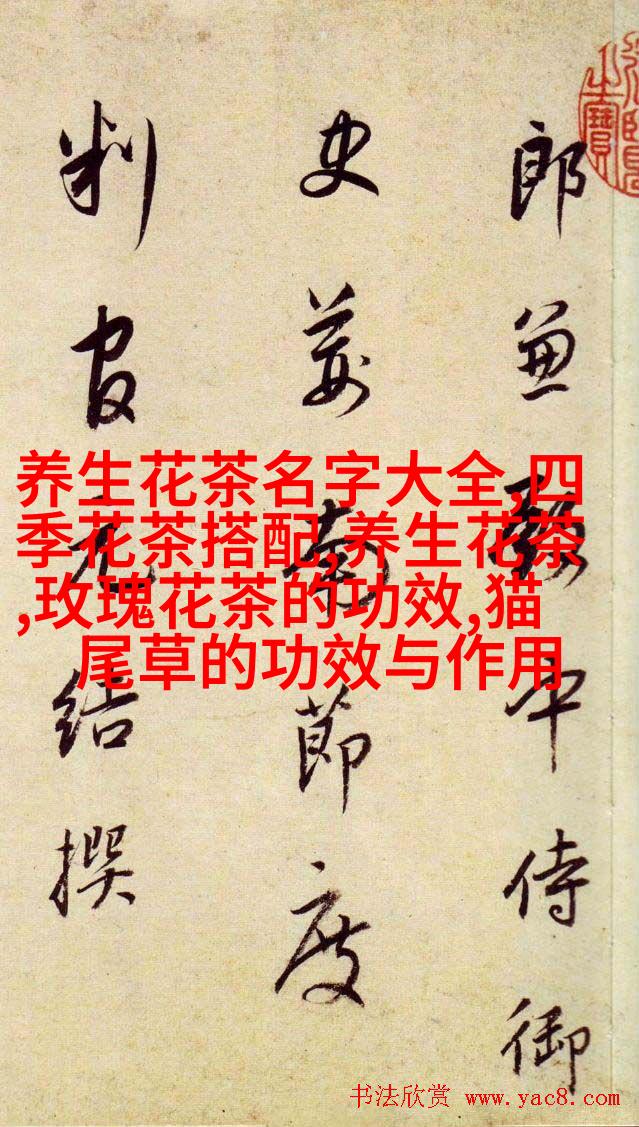 郎兼殿中侍御
史荊南節度
判官元結撰
养生花茶名字大全,四
季花茶搭配,养生花茶
,玫瑰花茶的功效,猫
尾草的功效与作用
书法欣赏 www.yac8.com